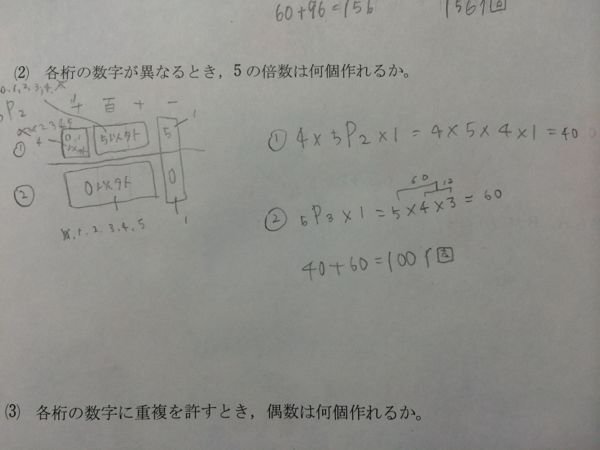 60+96=156 156個
(2) 各桁の数字が異なるとき，5の倍数は何個作れるか。
0,1,2,3,4,
5P2
千 百 十 一
2,3,4,5
① 4 0,1以外 5以外 5 1
① 4×5P2×1=4×5×4×1=40
② 0以外 0
1.2.3.4.5 1
60 12
② 5P3×1=5×4×3=60
40+60=100個
(3) 各桁の数字に重複を許すとき，偶数は何個作れるか。